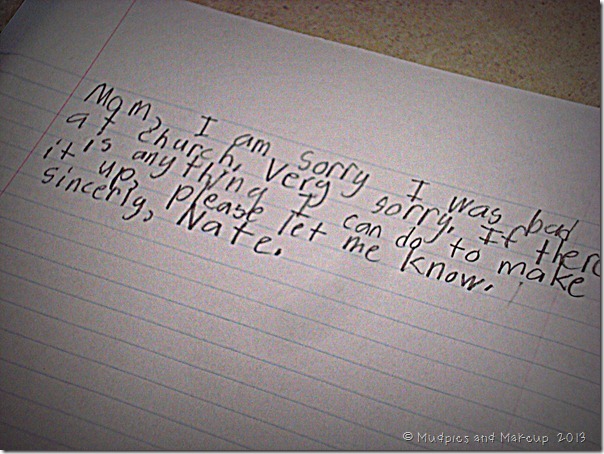 Mom, I am sorry I was bad
at church. Very sorry. If there
is anything I can do to make
it up, please let me know.
sincerly, Nate.
© Mudpies and Makeup 2013